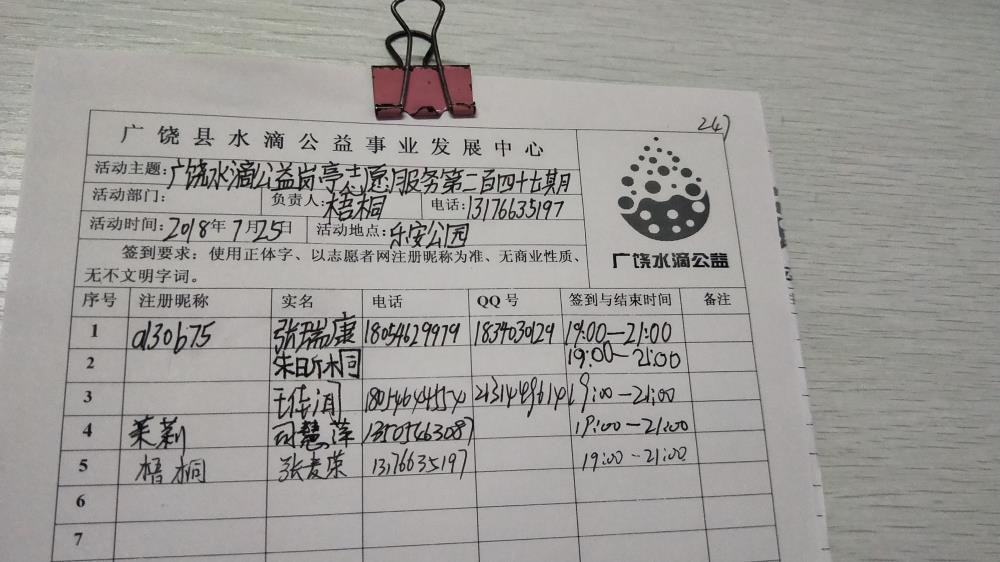 247
广饶县水滴公益事业发展中心
活动主题:广饶水滴公益岗亭志愿服务第二百四十七期
活动部门: 负责人:梧桐 电话:13176635197
活动时间:2018年7月25日 活动地点:乐安公园
签到要求:使用正体字、以志愿者网注册昵称为准、无商业性质、
无不文明字词。
广饶水滴公益
序号 注册昵称 实名 电话 QQ号 签到与结束时间 备注
1 a130675 张瑞康 18054629979 1834030129 19:00-21:00
2 19:00-21:00
3 19:00-21:00
4 茉莉 司慧萍 13505463087 19:00-21:00
5 梧桐 张麦荣 13176635197 19:00-21:00
6
7